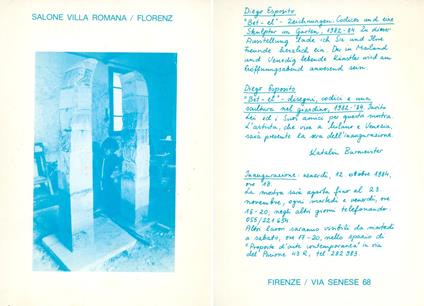 SALONE VILLA ROMANA / FLORENZ
Diego Esposito
"Bet-el" - Zeichnungen, Codices und eine
Skulptur im Garten, 1982-84. Zu dieser
Ausstellung lade ich Sie und Ihre
Freunde herzlich ein. Der in Mailand
und Venedig lebende Künstler wird am
Eröffnungsabend anwesend sein.
Diego Esposito
"Bet-el" - disegni, codici e una
scultura nel giardino, 1982-'84. Invito
Lei ed i Suoi amici per questa mostra.
L'artista, che vive a Milano e Venezia,
sarà presente la sera dell'inaugurazione.
Katalin Burmeister
Inaugurazione: venerdì, 12 ottobre 1984,
ore 18.
La mostra sarà aperta fino al 23.
novembre, ogni martedì e venerdì, ore
16-20, negli altri giorni telefonando:
055/221654
Altri lavori saranno visibili da martedì
a sabato, ore 17-20, nello spazio di
"Proposte d'arte contemporanea" in via
del Pavone 43 R, tel. 282983.
FIRENZE / VIA SENESE 68